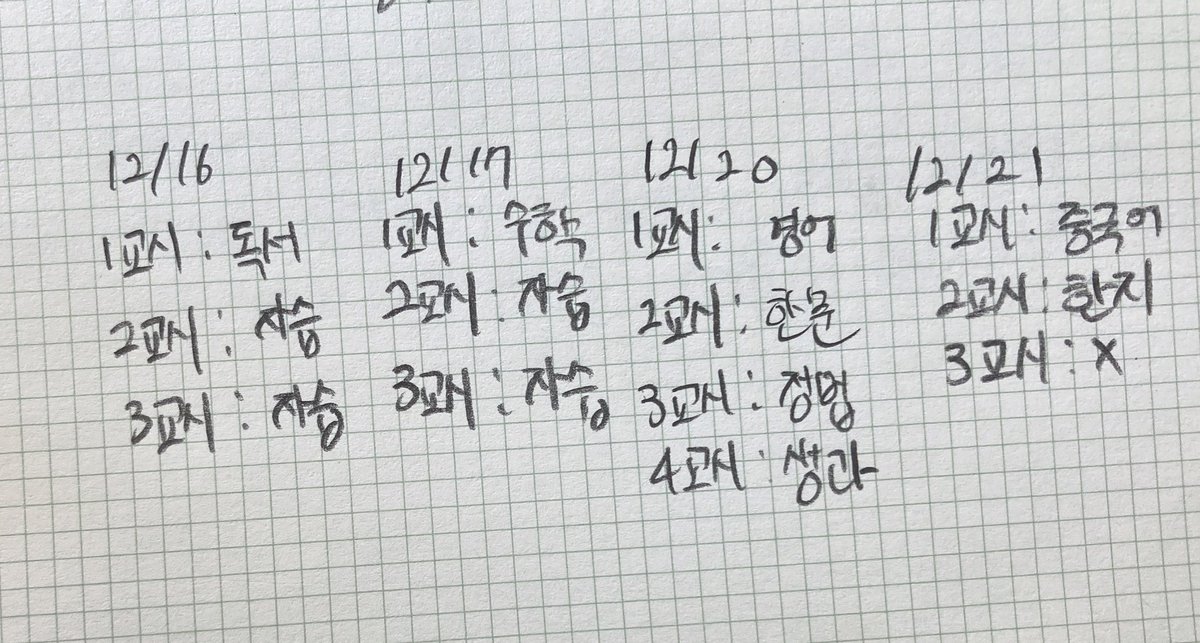 12/16
1교시 : 독서
2교시 : 자습
3교시 : 자습
12/17
1교시 : 수학
2교시 : 자습
3교시 : 자습
12/20
1교시 : 영어
2교시 : 한문
3교시 : 정법
4교시 : 생과
12/21
1교시 : 중국어
2교시 : 한지
3교시 : X